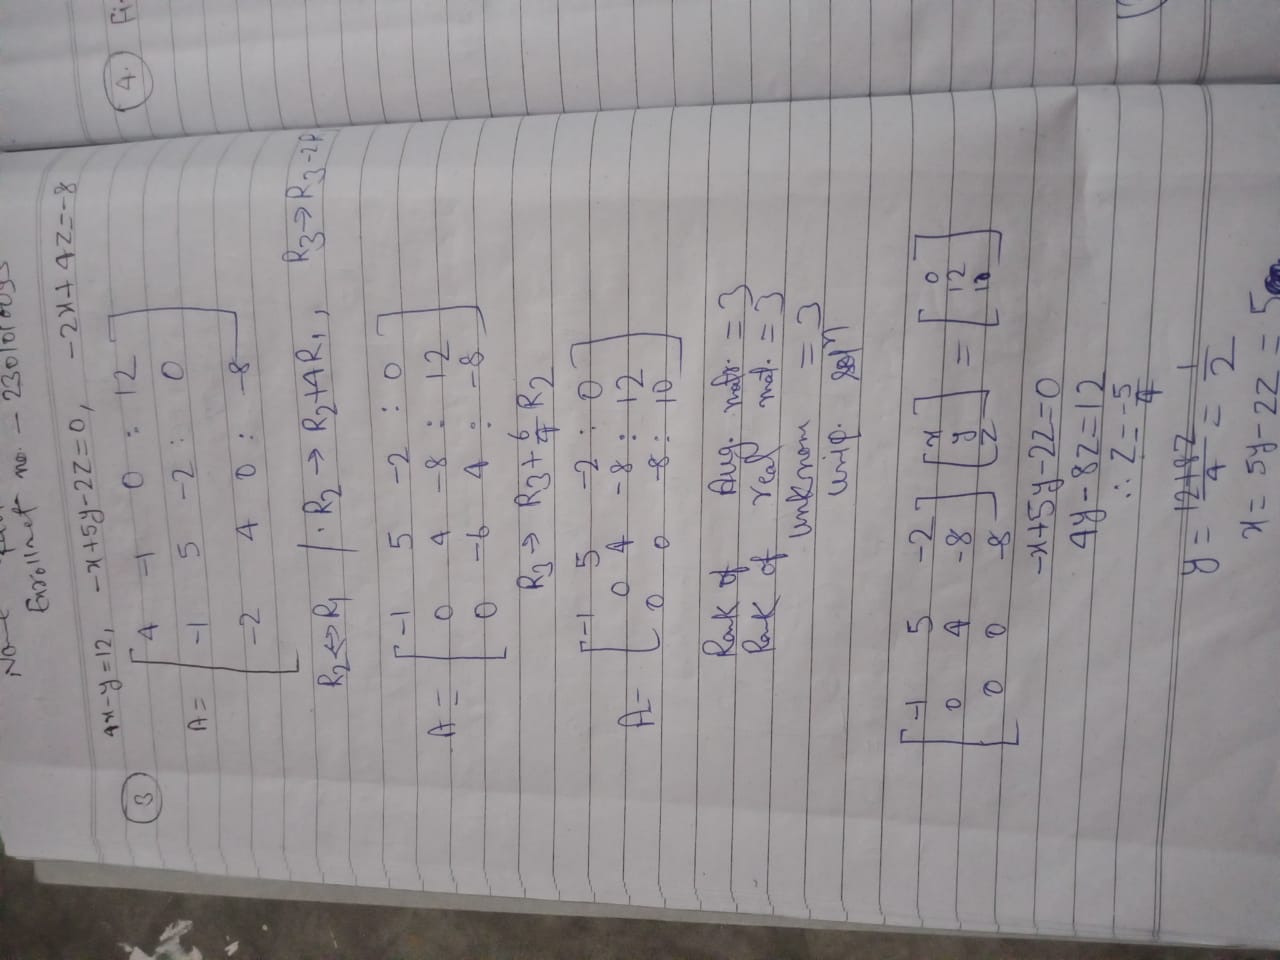 Enrollmet no. - 230101
③ 4x-y=12, -x+5y-2z=0, -2x+4z=-8
A= [ 4 -1 0 : 12
-1 5 -2 : 0
-2 4 0 : -8 ]
R2⇔R1 / R2 → R2+4R1, R3→R3-2R
A= [ -1 5 -2 : 0
0 4 -8 : 12
0 -6 4 : -8 ]
R3→ R3+6/4 R2
A= [ -1 5 -2 : 0
0 4 -8 : 12
0 0 -8 : 10 ]
Rank of Aug. matr. = 3
Rank of real mat. = 3
unknown = 3
uniq. solⁿ
[ -1 5 -2 ] [ x ] = [ 0 ]
[ 0 4 -8 ] [ y ] [ 12 ]
[ 0 0 -8 ] [ z ] [ 10 ]
-x+5y-2z=0
4y-8z=12
∴ z=-5/4
y= 12+8z/4 = 1/2
x= 5y-2z = 5
④ Fi